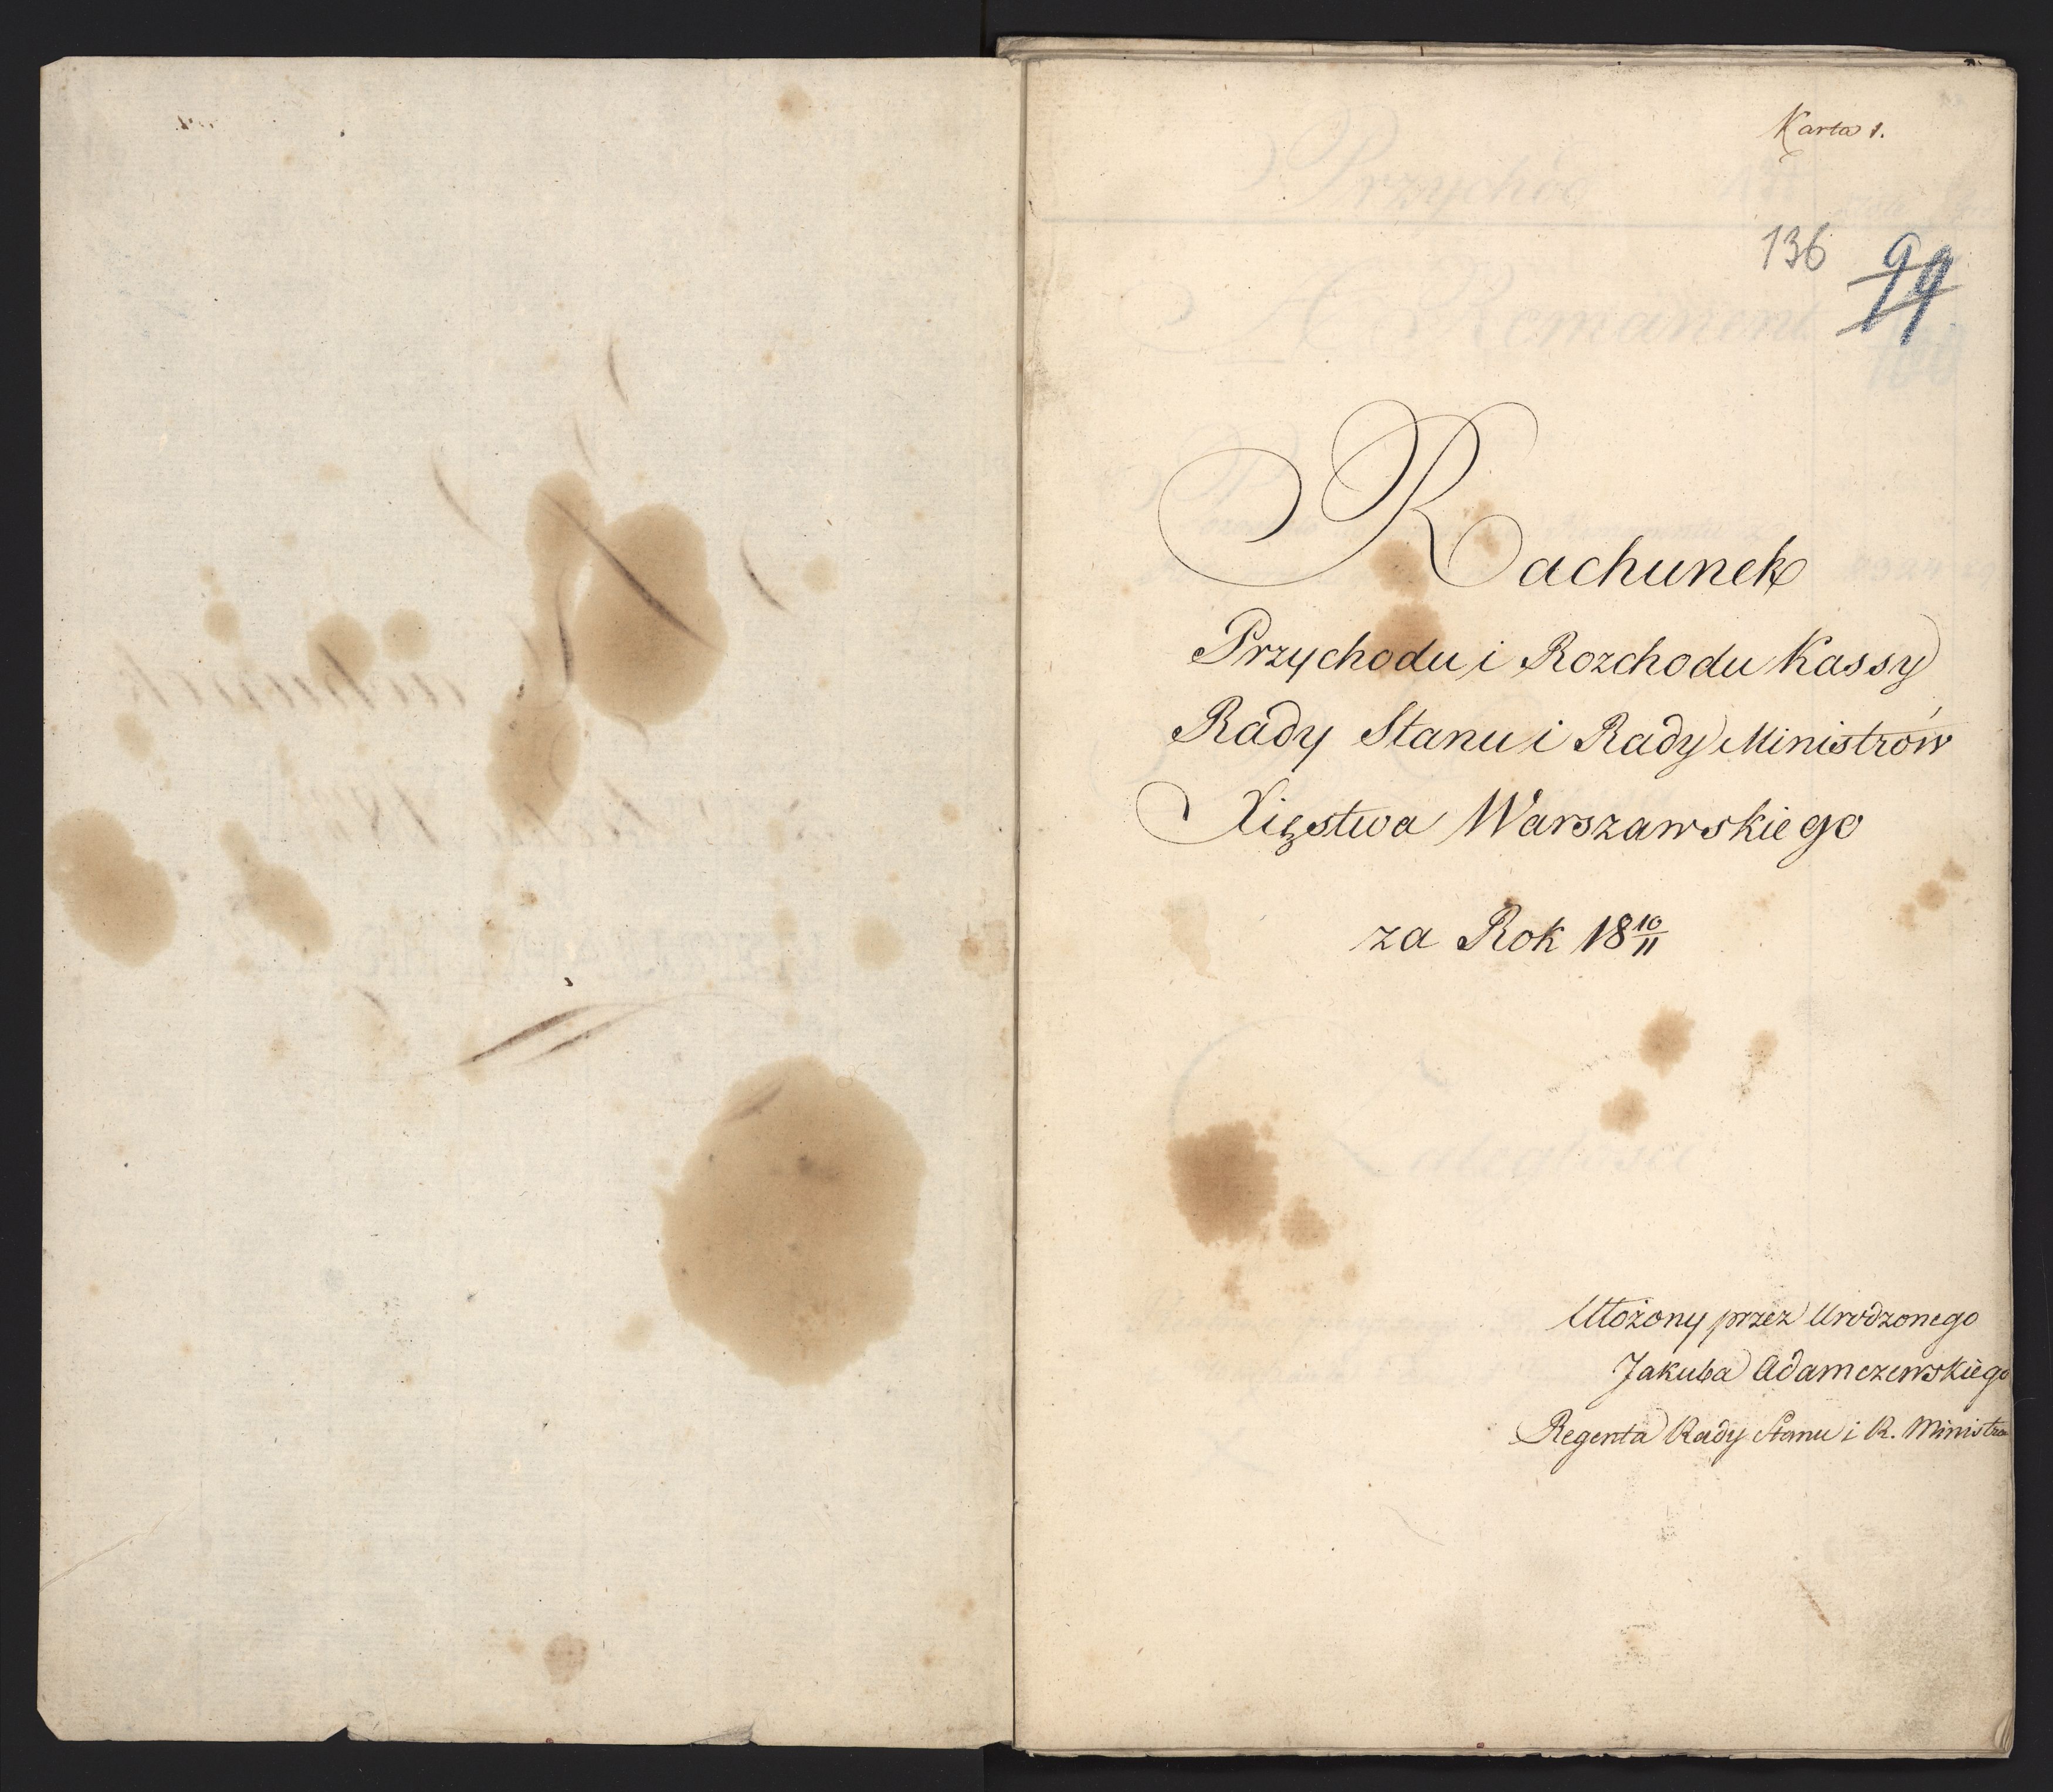 Karta 1.
136 99
Rachunek
Przychodu i Rozchodu Kassy
Rady Stanu i Rady Ministrów
Xięstwa Warszawskiego
za Rok 18 10/11
Ułożony przez Urodzonego
Jakuba Adamczewskiego
Regenta Rady Stanu i R. Ministrow